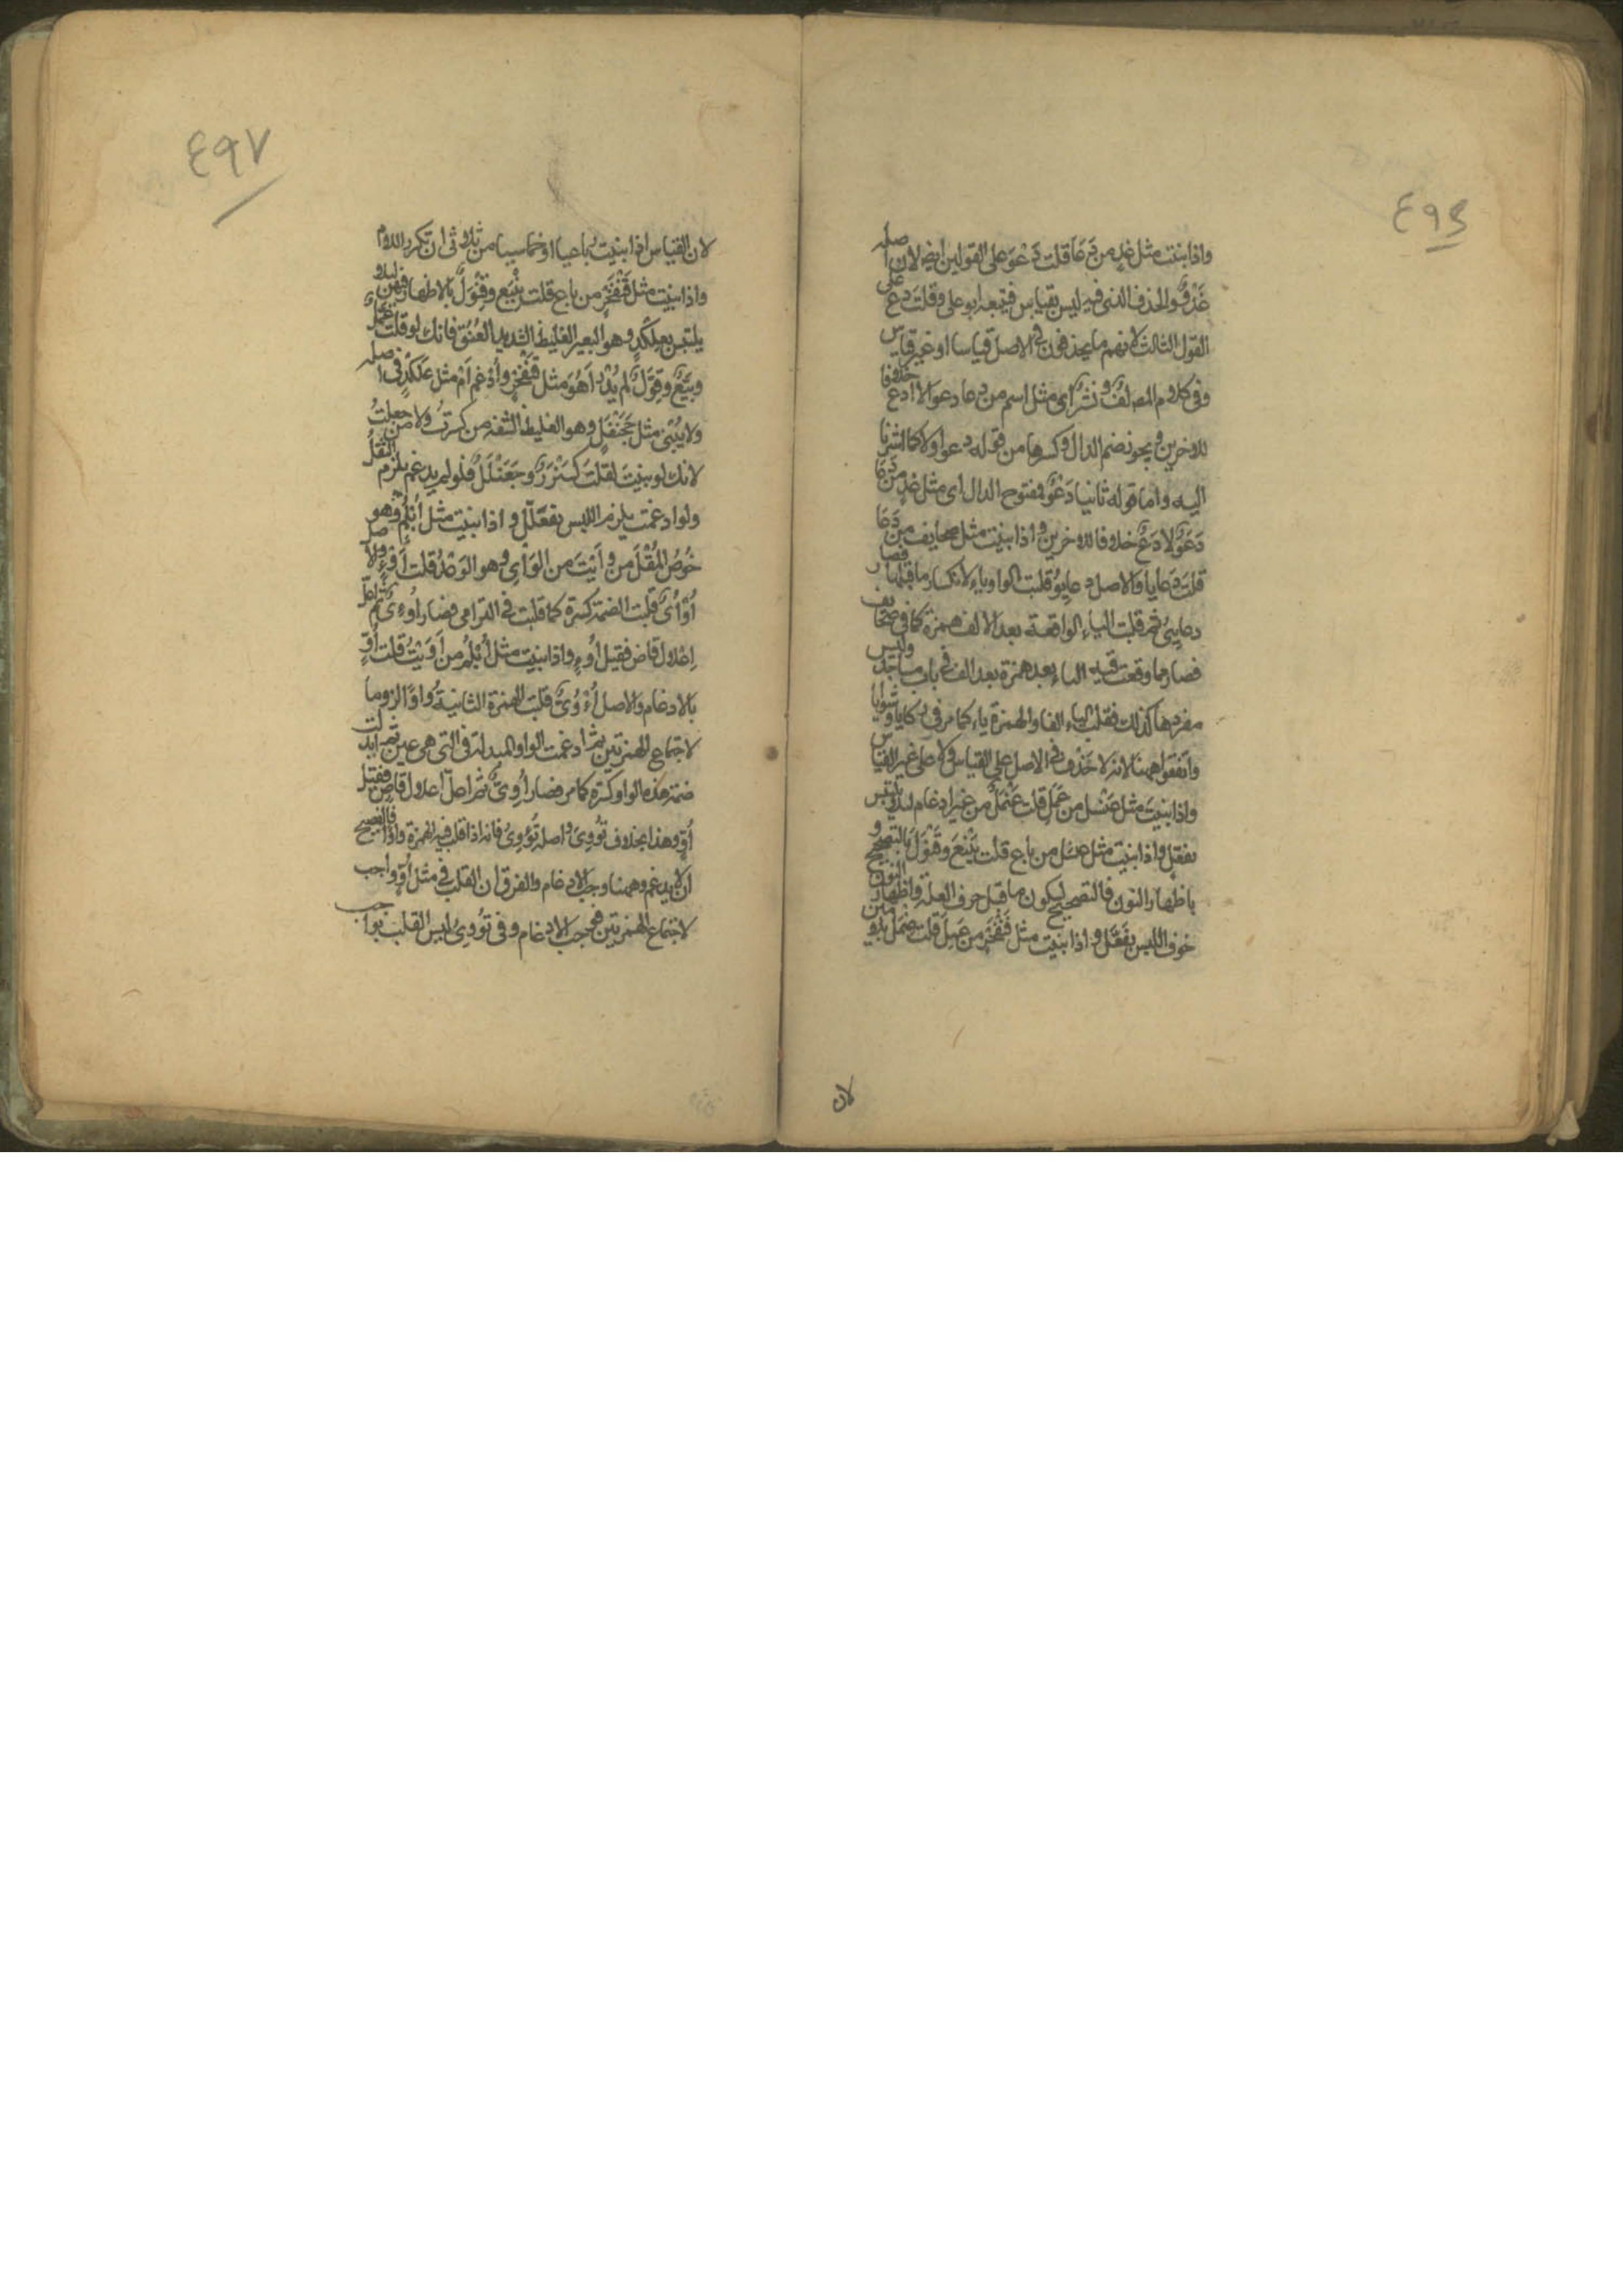 ٤٩٦
واذا بنيت مثل غد من دَعَا قلت دَعْوَ على القولين ايضا لان اصله
غَدْوٌ والحذف الذى فيه ليس بقياس فيتبعه ابو على وقلت دع على
القول الثالث لانهم ما يحذفون فى الاصل قياسا او غير قياس
وفى كلام المص لفٌّ ونشرٌ اى مثل اسم من دعا دعو الا ادع خلافا
للاخرين ويجوز ضم الدال وكسرها من قوله دعو اولا كما اشرنا
اليه واما قوله ثانيا دَعْوٌ مفتوح الدال اى مثل غد من دَعَا
دَعْوٌ لا دَعٌ خلافا للاخرين واذا بنيت مثل صحايف من دَعَا
قلت دَعايا والاصل دعايِوُ قلبت الواو ياء لانكسار ما قبلها فصار
دعايِىُ ثم قلبت الياء الواقعة بعد الالف همزة كما فى صحايف
فصار مما وقعت فيه الياء بعد همزة بعد الف فى باب مساجد وليس
مفردها كذلك فقلبت الياء الفا والهمزة ياء كما مر فى ركايا وشوايا
واتفقوا ههنا لانه لا حَذْفَ فى الاصل على القياس ولا على غير القياس
واذا بنيتَ مثل عَنْسل من عَمل قلت عَنْمَلٌ من غير ادغام لئلا يلتبس
بفعّل واذا بنيت مثل عنسل من باع قلت بَنْيَعَ وقَنْوَلَ بالتصحيح و
باظهار النون فالتصحيح لسكون ما قبل حرف العلة واظهار النون
خوف اللبس بفَعَّل واذا بنيت مثل قنفخر من عَمِلَ قلت عِنْمَلّ بلامين
لان
٤٩٧
لان القياس اذا بنيت رباعيا او خماسيا من ثلاثى ان تكرر اللام
واذا بنيت مثل قنفخر من باع قلت بِنْيَعّ وقِنْوَلّ بالاظهار فيهن لئلا
يلتبس بعلكد وهو البعير الغليظ الشديد العُنُق فانك لو قلت عِمَّلّ
وبيَّعٌّ وقوَّلّ لم يُدْرَ اَهُوَ مثل قنفخر واُدْغِم اَمْ مثل علكد فى اصله
ولا يُبْنى مثل جَحَنْفَلٍ وهو الغليظ الشفه من كسرتُ ولا من جعلتُ
لانك لو بنيت لقلت كَسَنْرَرٌ وجَعَنْلَلٌ فلو لم يدغم يلزم الثقلُ
ولو ادغمت يلزم اللبس بفعلّل واذا بنيت مثل اُبْلُمٌ وهو
خُوصُ المُقْلِ من وأيت من الوَأىِ وهو الوَعْدُ قلت اُوءٍ والاصل
اُوْاُىٌ قلبت الضمة كسرة كما قلبت فى الترامى فصار اُوءِىٌ ثم اعلّ
اِعْلال قاض فقيل اُوءٍ واذا بنيت مثل اُبْلُم من اَوَيْتُ قلت اُوٍّ
بالادغام والاصل اُؤْوُىٌ قلبت الهمزة الثانية واوًا لزوما
لاجتماع الهمزتين ثم ادغمت الواو المبدلة فى التى هى عين ثم ابدلت
ضمة هذه الواو كسرة كما مر فصار اُوِّىٌ ثم اعلّ اعلال قاض فقيل
اُوٍّ وهذا بخلاف تُؤْوِى واصله تُؤْوِىُ فانه اذا قلب فيه الهمزة واوا فالفصيح
ان لا يدغم وههنا وجب الادغام والفرق ان القلب فى مثل اُوٍّ واجب
لاجتماع الهمزتين فوجب الادغام وفى تُؤْوِى ليس القلب بواجب